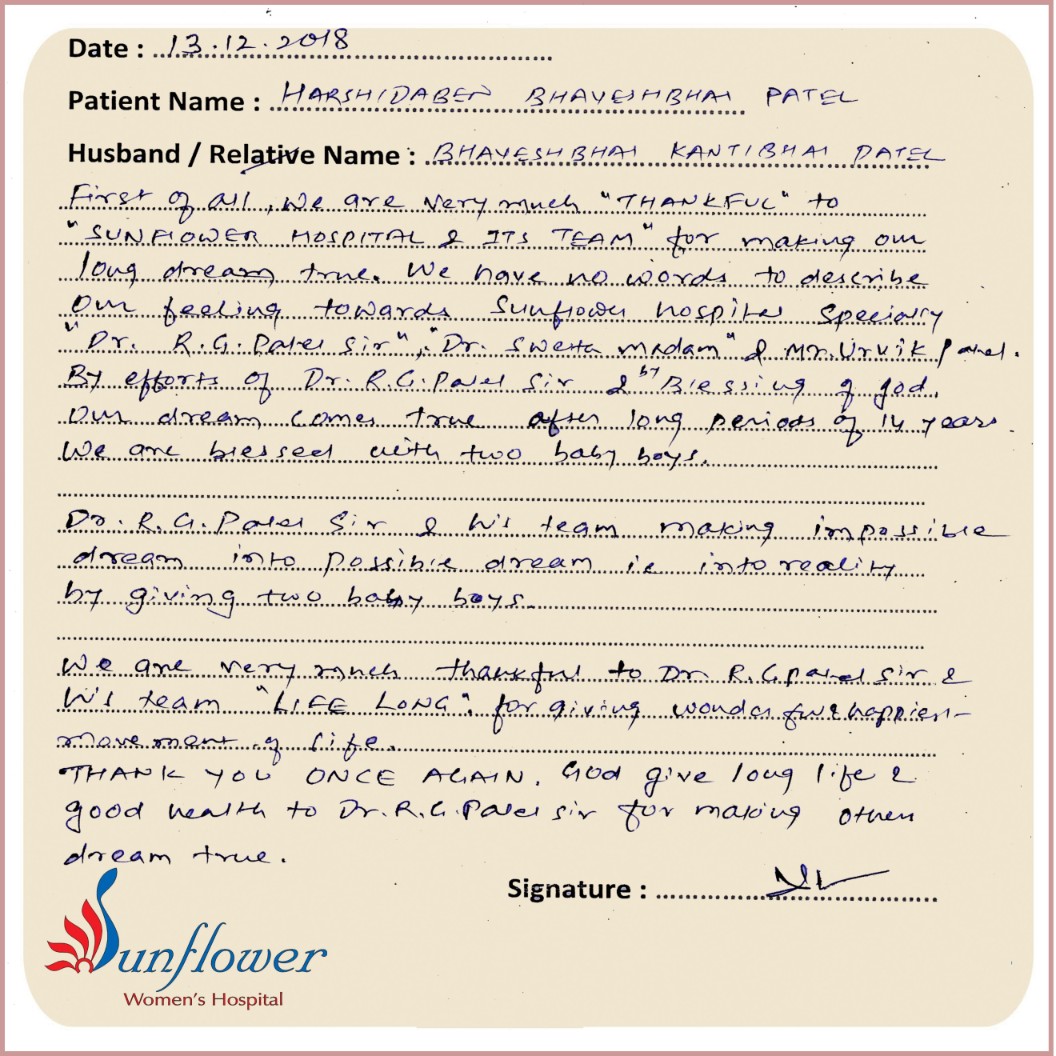 Date : 13.12.2018
Patient Name : HARSHIDABEN BHAVESHBHAI PATEL
Husband / Relative Name : BHAVESHBHAI KANTIBHAI PATEL
First of all, We are very much "THANKFUL" to
"SUNFLOWER HOSPITAL & ITS TEAM" for making our
long dream true. We have no words to describe
our feeling towards Sunflower hospital specially
"Dr. R.G. Patel Sir", "Dr. Swetta madam" & Mr. Urvik Patel.
By efforts of Dr. R.G. Patel Sir & by Blessing of god,
our dream comes true after long periods of 14 years.
We are blessed with two baby boys.
Dr. R.G. Patel Sir & his team making impossible
dream into possible dream ie into reality
by giving two baby boys.
We are very much thankful to Dr. R.G. Patel Sir &
his team "LIFE LONG". for giving wonderful & happiest
movement of life.
THANK YOU ONCE AGAIN. God give long life &
good health to Dr. R.G. Patel sir for making others
dream true.
Signature :
Sunflower
Women's Hospital